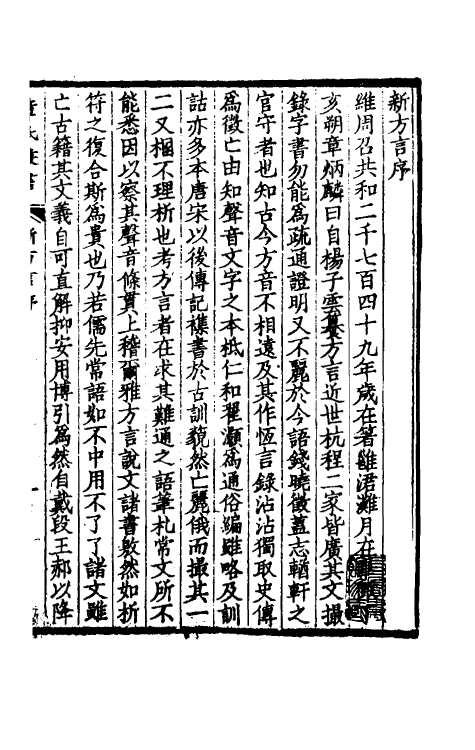 新方言序
維周召共和二千七百四十九年歲在箸雝涒灘月在
亥朔章炳麟曰自楊子雲纂方言近世杭程二家皆廣其文撮
錄字書勿能爲疏通證明又不麗於今語錢曉徵蓋志輶軒之
官守者也知古今方音不相遠及其作恆言錄沾沾獨取史傳
爲徵亡由知聲音文字之本柢仁和翟灝爲通俗編雖略及訓
詁亦多本唐宋以後傳記襍書於古訓藐然亡麗俄而撮其一
二又楓不理析也考方言者在求其難通之語筆札常文所不
能悉因以察其聲音條貫上稽爾雅方言說文諸書敫然如析
符之復合斯爲貴也乃若儒先常語如不中用不了了諸文雖
亡古籍其文義自可直解抑安用博引爲然自戴段王郝以降
章氏叢書
新方言序
一